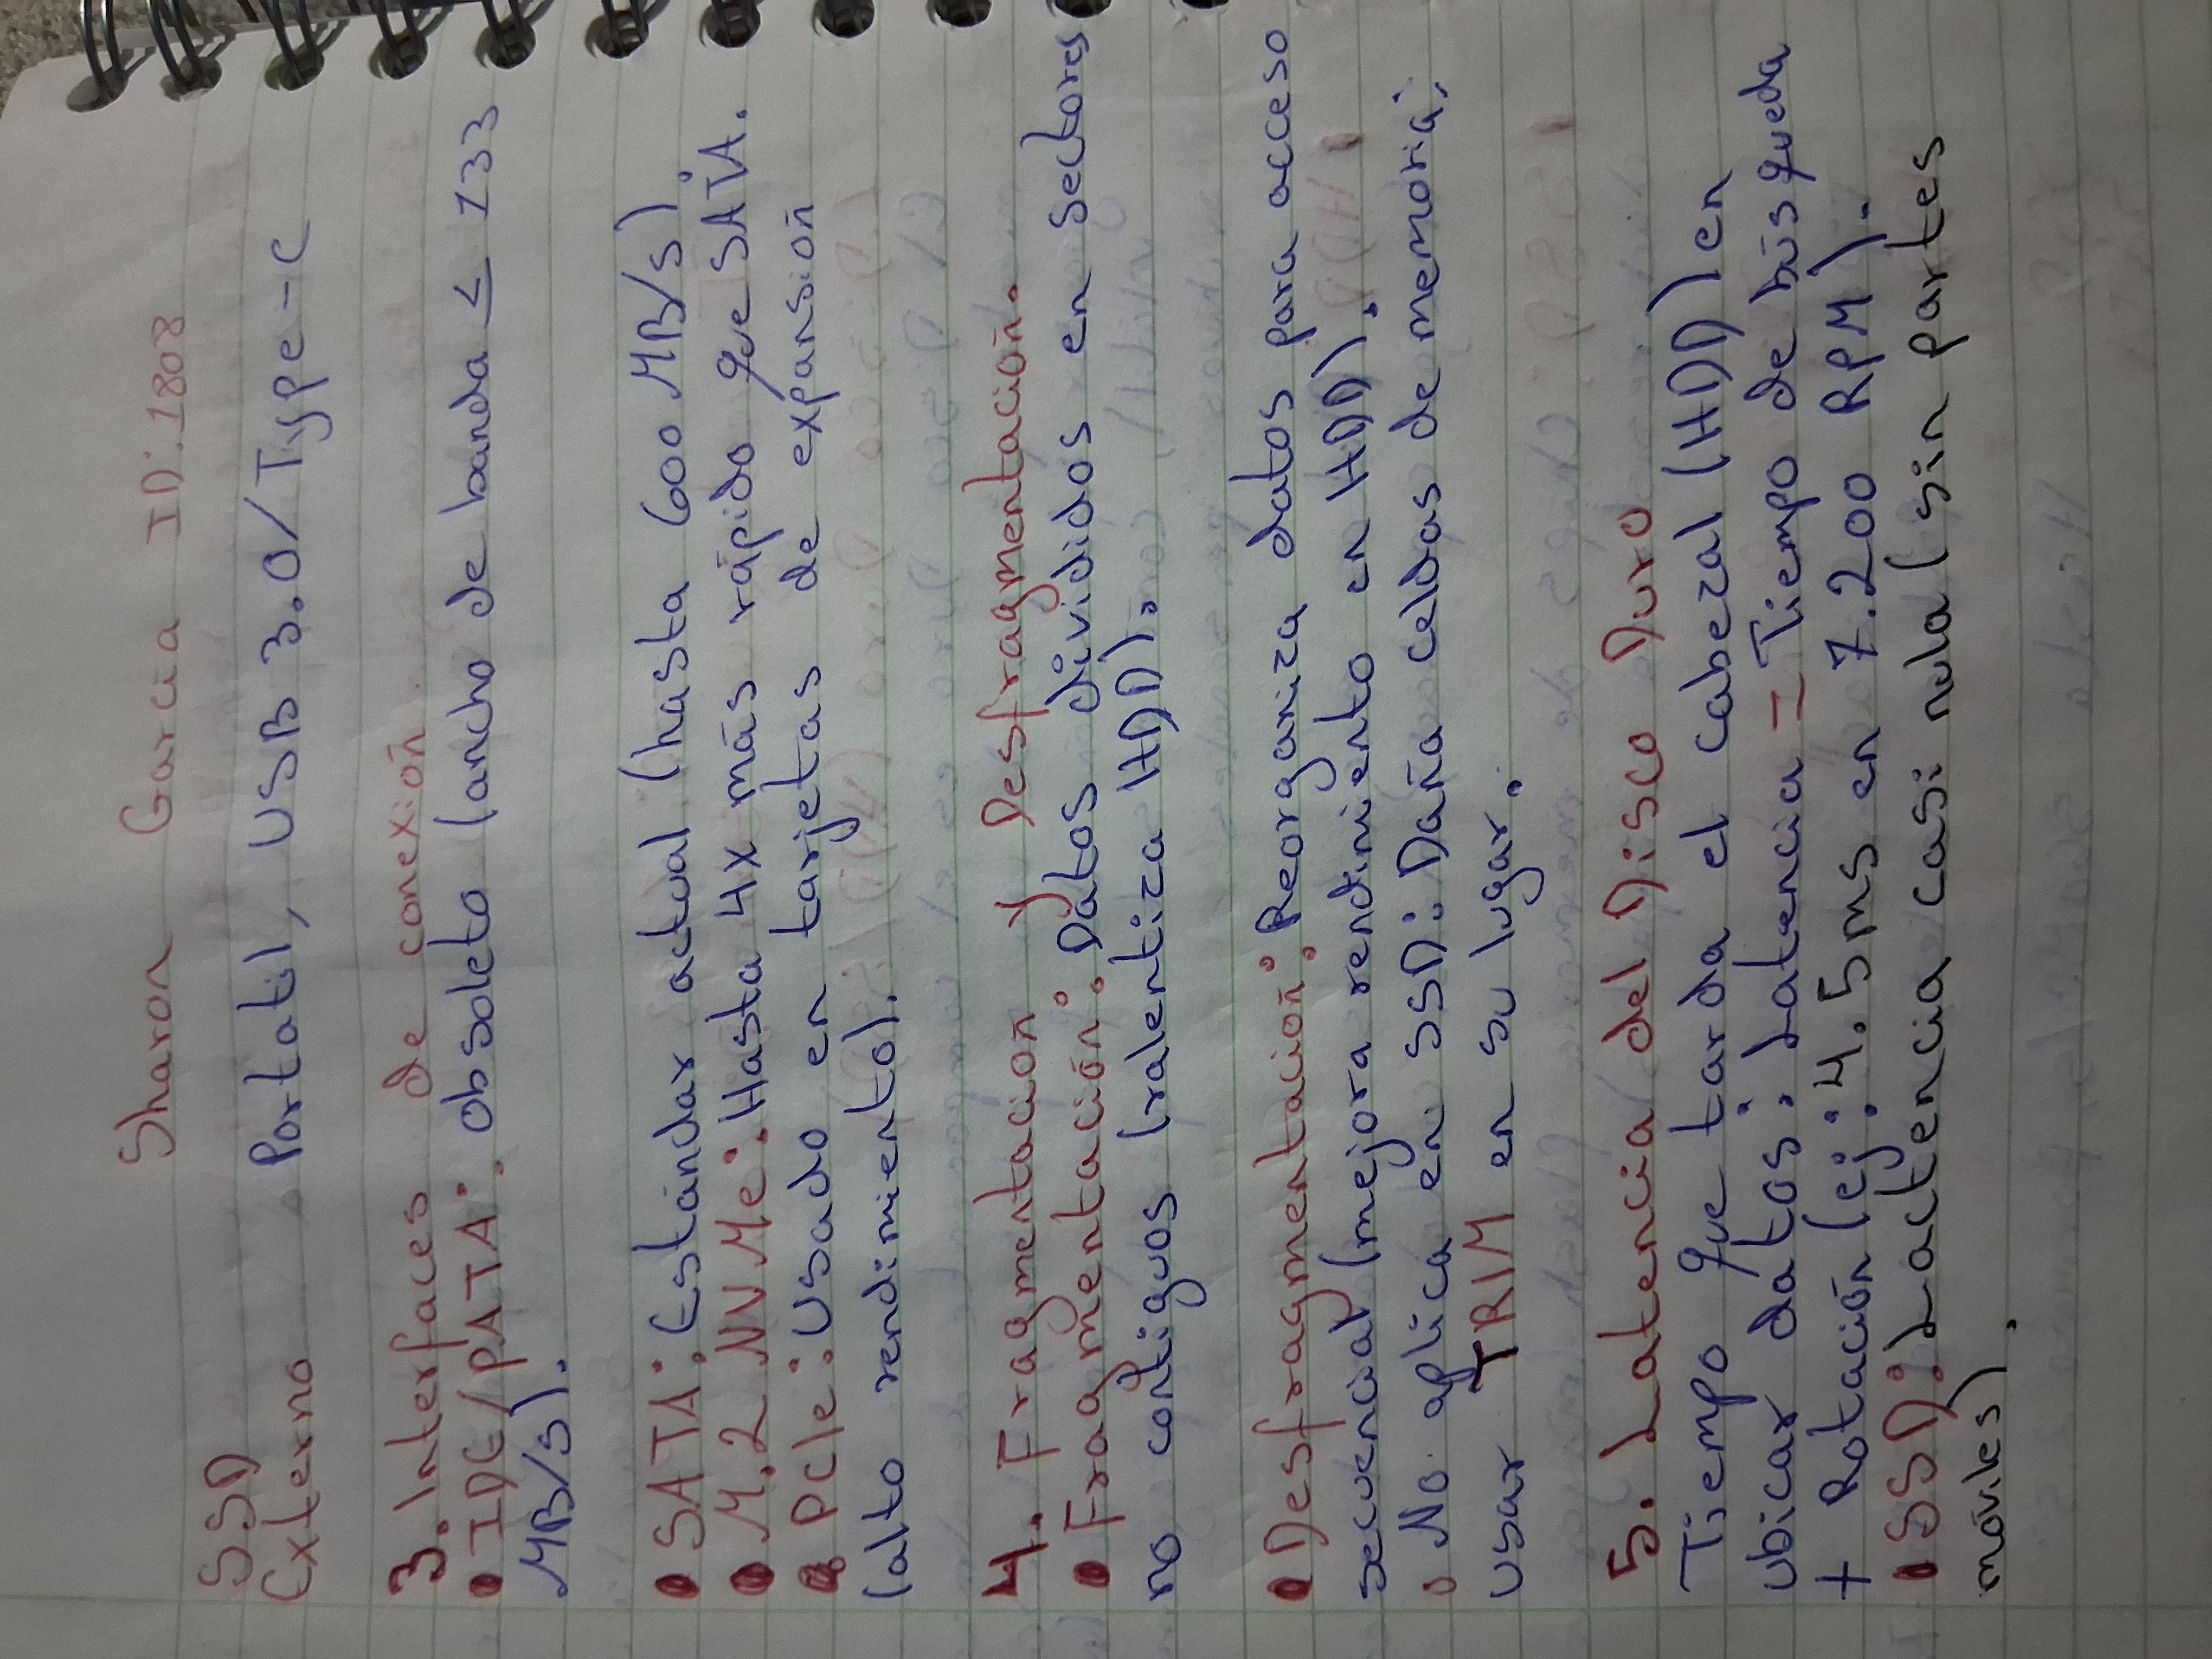 Sharon Garcia ID: 1808
SSD
Externo
Portatil, USB 3.0/Type-C
3. Interfaces de conexión
• IDE/PATA: obsoleto (ancho de banda ≤ 133
MB/s).
• SATA: Estándar actual (hasta 600 MB/s).
• M.2 NVMe: Hasta 4x más rápido que SATA.
• PCIe: Usado en tarjetas de expansión
(alto rendimiento).
4. Fragmentación y Desfragmentación.
• Fragmentación: Datos divididos en sectores
no contiguos (ralentiza HDD).
• Desfragmentación: Reorganiza datos para acceso
secuencial (mejora rendimiento en HDD).
○ No aplica en SSD: Daña celdas de memoria;
usar TRIM en su lugar.
5. Latencia del Disco Duro
Tiempo que tarda el cabezal (HDD) en
ubicar datos: Latencia = Tiempo de búsqueda
+ Rotación (ej: 4.5ms en 7.200 RPM).
• SSD: Lactencia casi nula (sin partes
móviles).